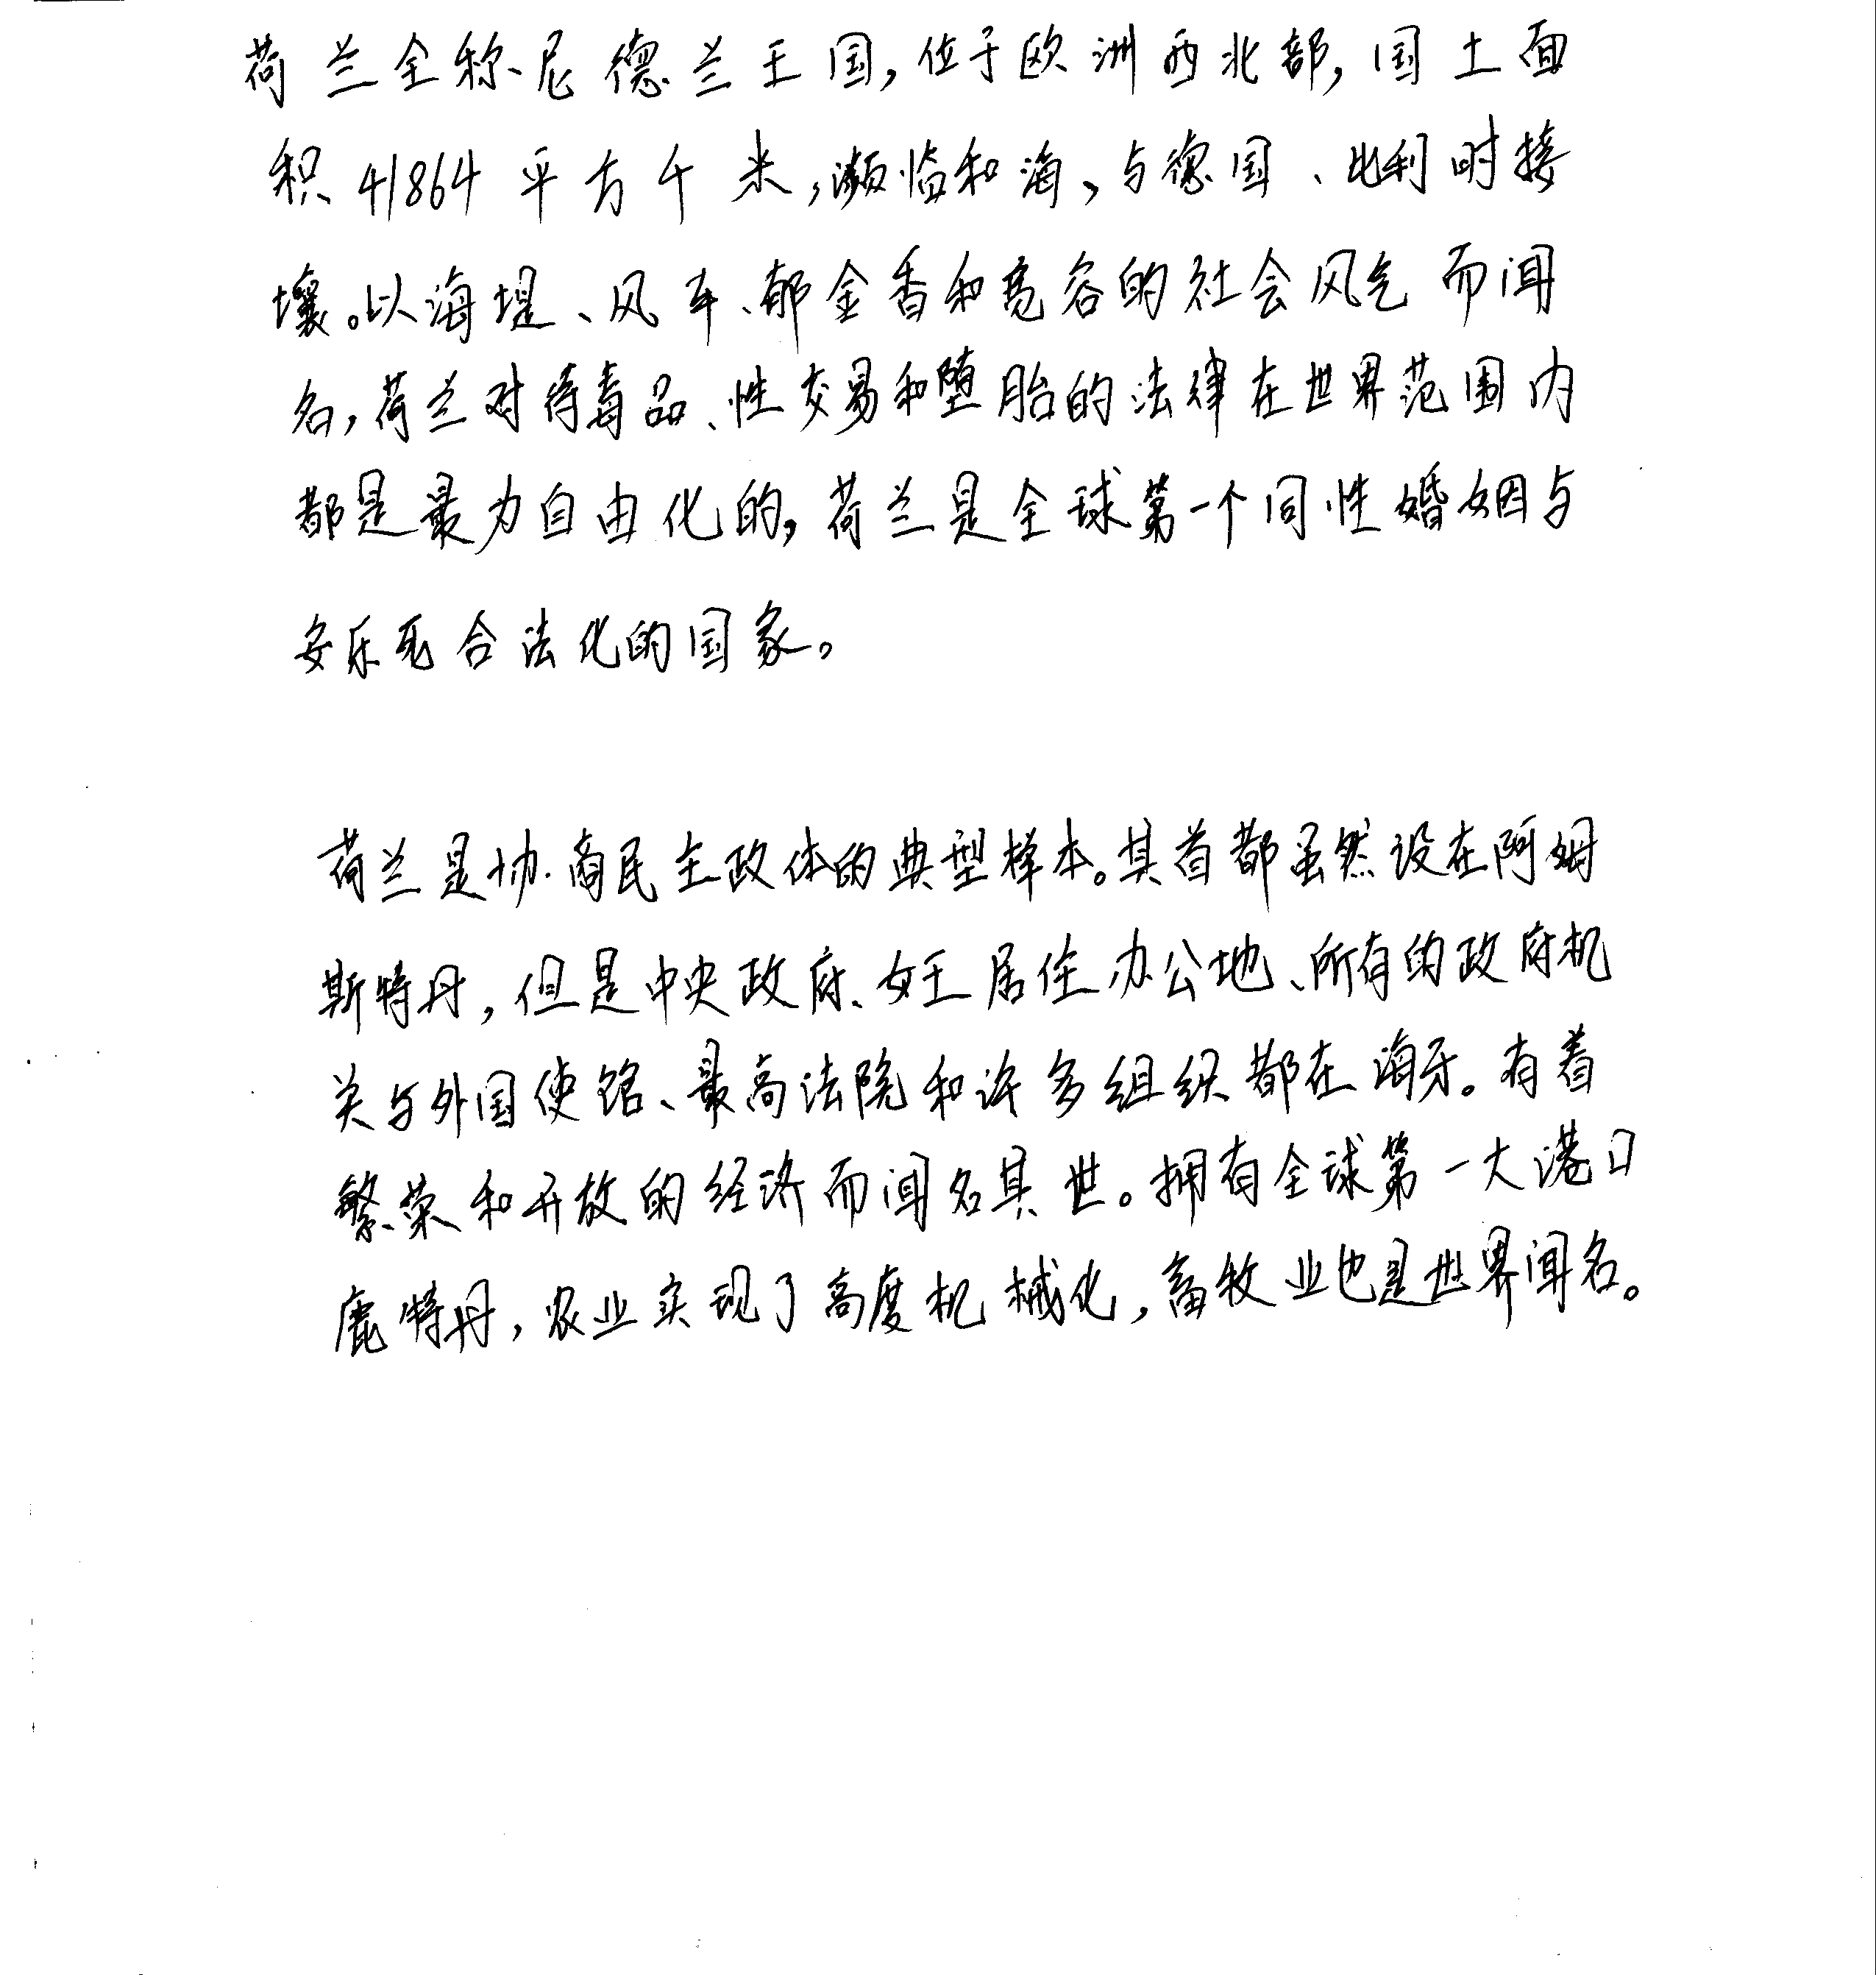 荷兰全称尼德兰王国,位于欧洲西北部,国土面
积41864平方千米,濒临和海,与德国、比利时接
壤。以海堤、风车、郁金香和宽容的社会风气而闻
名,荷兰对待毒品、性交易和堕胎的法律在世界范围内
都是最为自由化的,荷兰是全球第一个同性婚姻与
安乐死合法化的国家。
荷兰是协商民主政体的典型样本。其首都虽然设在阿姆
斯特丹,但是中央政府、女王居住办公地、所有的政府机
关与外国使馆、最高法院和许多组织都在海牙。有着
繁荣和开放的经济而闻名其世。拥有全球第一大港口
鹿特丹,农业实现了高度机械化,畜牧业也是世界闻名。